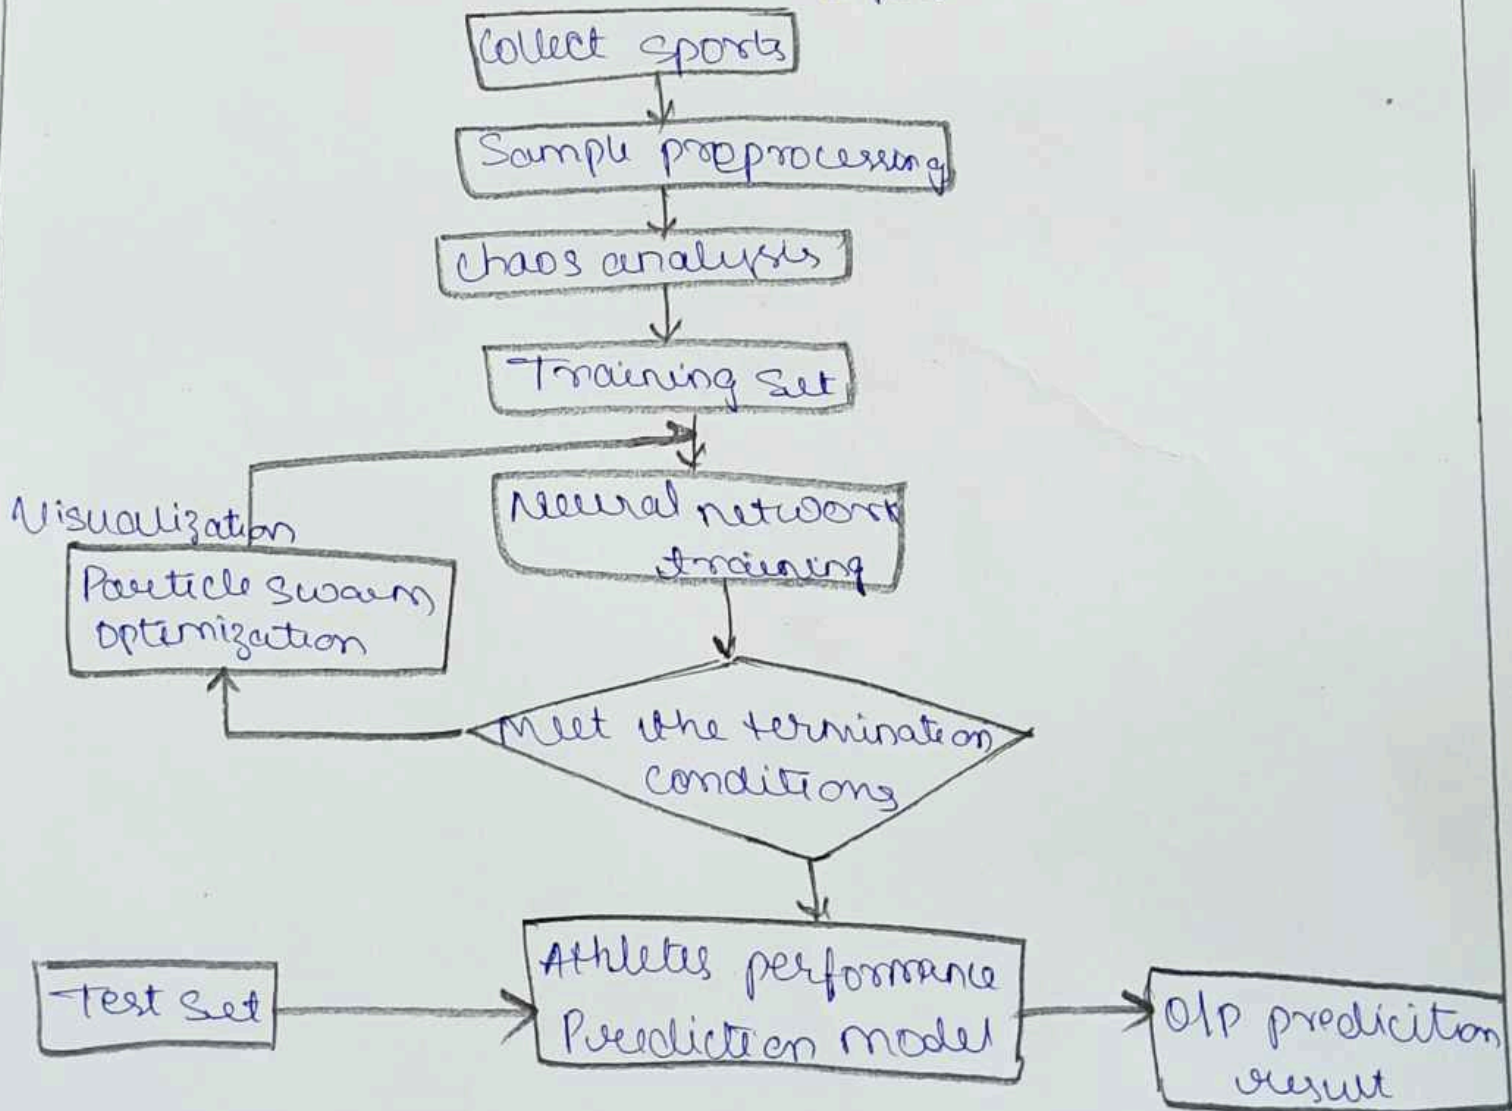 Collect sports
Sample preprocessing
Chaos analysis
Training set
Visualization
Neural network
training
Particle swarm
optimization
Meet the termination
conditions
Athletes performance
Prediction model
Test set
O/P predicition
result